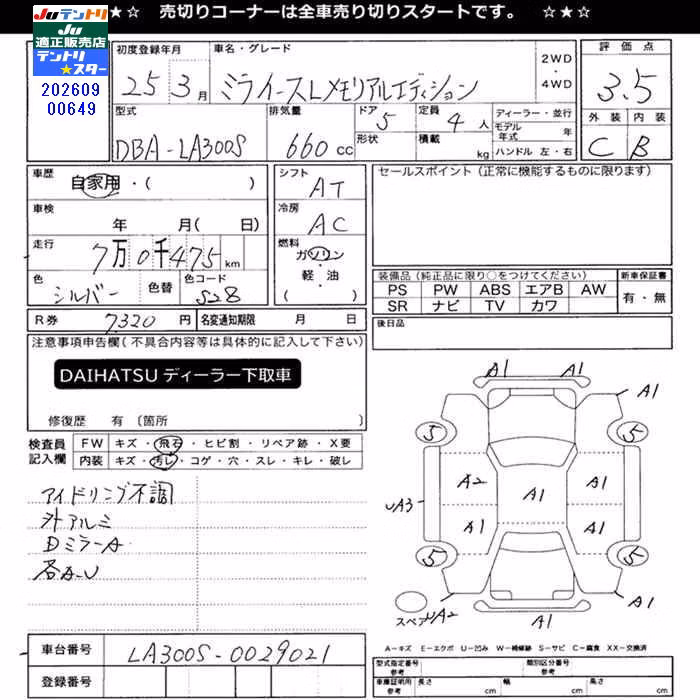 ★☆ 売切りコーナーは全車売り切りスタートです。 ☆★☆
Juテントリ
Ju
適正販売店
テントリ
★スター
202609
00649
初度登録年月 車名・グレード
25 3月 ミライースLメモリアルエディション
2WD
・
4WD
評価点
3.5
外装 内装
C B
型式 排気量 ドア 定員 ディーラー・並行
DBA-LA300S 660cc 5 4人
モデル年式 年
形状 積載 kg ハンドル 左・右
車歴 自家用・( )
シフト AT
セールスポイント(正常に機能するものに限ります)
車検 年 月( 日)
冷房 AC
走行 7万0千475km
燃料 ガソリン・軽・油( )
色 シルバー 色替 色コード S28
装備品(純正品に限り○をつけてください) 新車保証書
PS PW ABS エアB AW 有・無
SR ナビ TV カワ
R券 7320円 名変通知期限 月 日
後日品
注意事項申告欄(不具合内容等は具体的に記入して下さい)
DAIHATSU ディーラー下取車
修復歴 有 〔箇所
検査員記入欄
FW キズ・飛石・ヒビ割・リペア跡・X要
内装 キズ・汚レ・コゲ・穴・スレ・キレ・破レ
アイドリング不調
外アルミ
DミラーA
各A.U
A1 A1
A1
5 5
A2 A1 A1
UA3
A1 A1
5 5
スペア UA2 A1 A1
A-キズ E-エクボ U-凹み W-補修跡 S-サビ C-腐食 XX-交換済
車台番号 LA300S-0029021
登録番号
型式指定番号 参考 類別区分番号
車庫証明用 参考 長さ cm 幅 cm 高さ cm